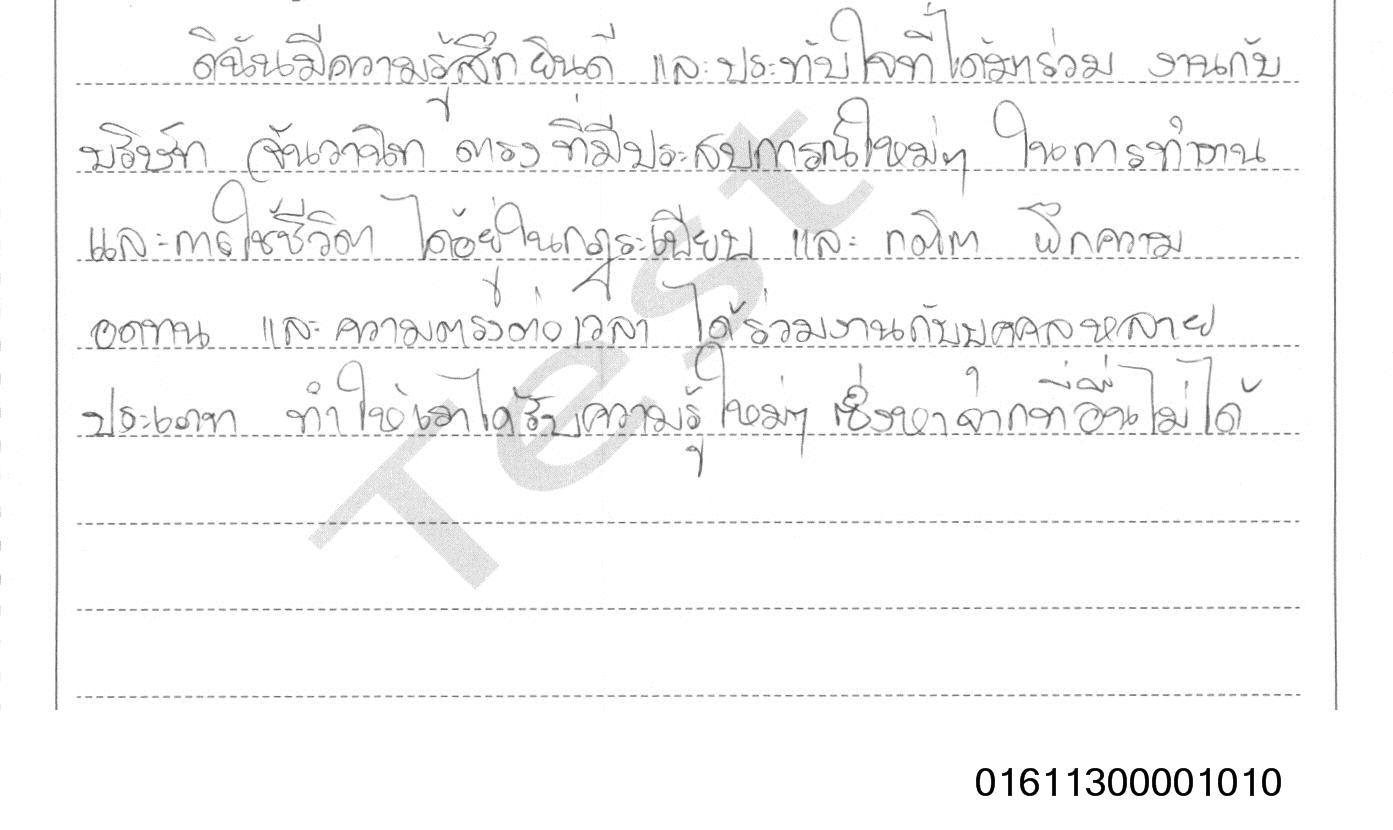 ดิฉันมีความรู้สึกยินดี และประทับใจที่ได้มาร่วม งานกับ
บริษัท จันวานิช ตรงที่มีประสบการณ์ใหม่ๆ ในการทำงาน
และการใช้ชีวิต ได้อยู่ในกฎระเบียบ และ กติกา ฝึกความ
อดทน และ ความตรงต่อเวลา ได้ร่วมงานกับบุคคลหลาย
ประเภท ทำให้เราได้รับความรู้ใหม่ๆ ซึ่งหาจากที่อื่นไม่ได้
Test
01611300001010